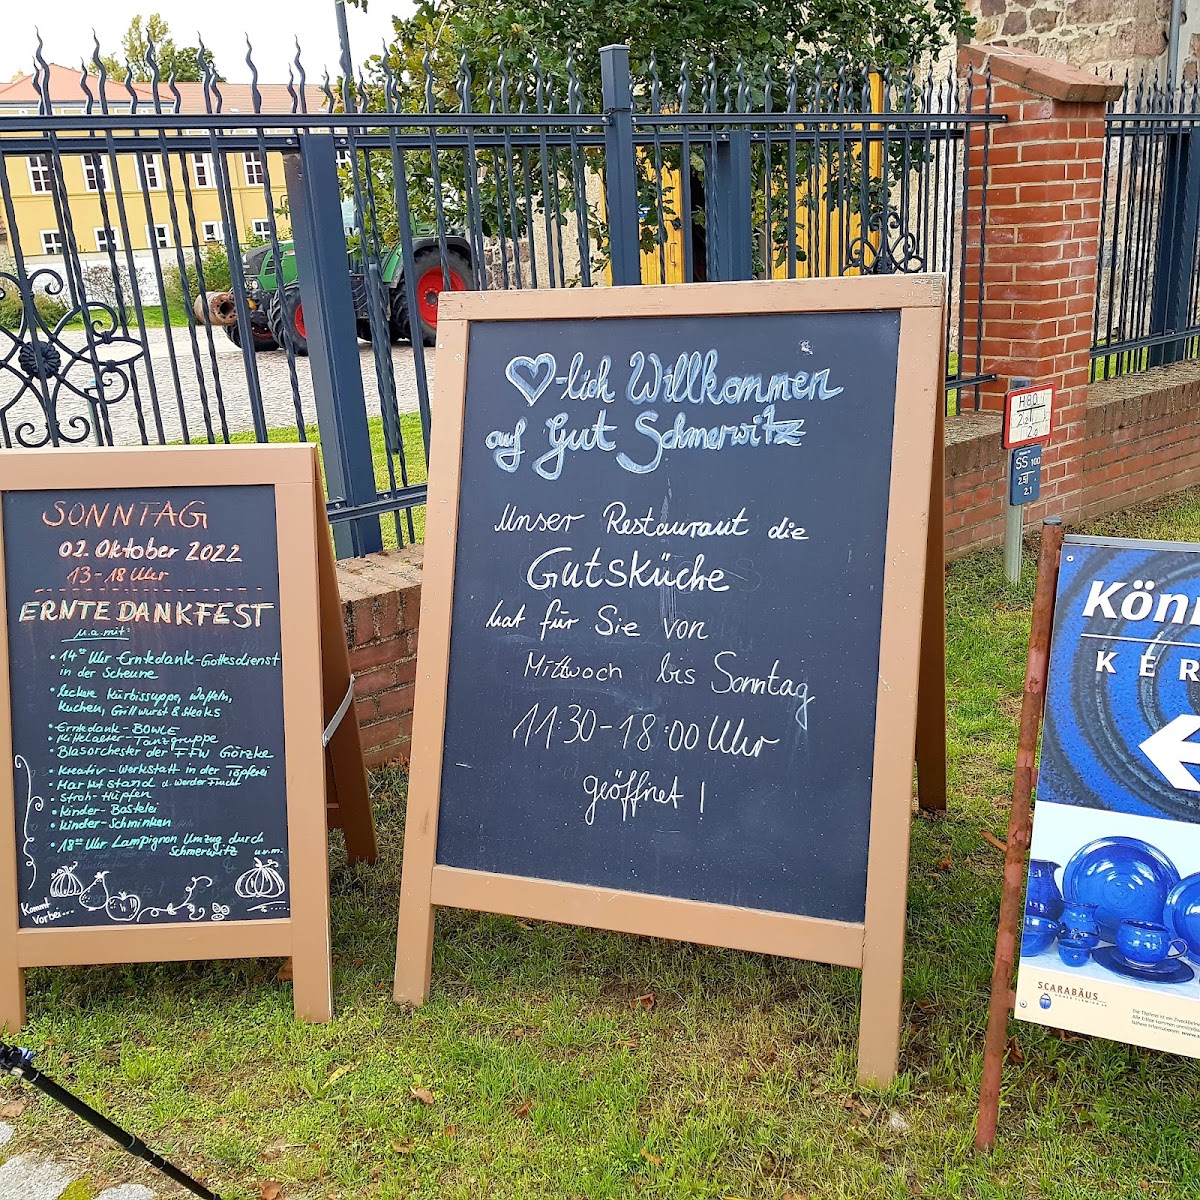 SONNTAG
02. Oktober 2022
13-18 Uhr
ERNTEDANKFEST
u.a. mit:
• 14⁰⁰ Uhr Erntedank-Gottesdienst
in der Scheune
• leckere Kürbissuppe, Waffeln,
Kuchen, Grillwurst & Steaks
• Erntedank-BOWLE
• Mittelalter-Tanzgruppe
• Blasorchester der FFW Görzke
• Kreativ-Werkstatt in der Töpferei
• Marktstand d. Werder Frucht
• Stroh-Hüpfen
• Kinder-Bastelei
• Kinder-Schminken
• 18⁰⁰ Uhr Lampignon Umzug durch
Schmerwitz u.v.m.
Kommt
vorbei...
♡-lich Willkommen
auf Gut Schmerwitz
Unser Restaurant die
Gutsküche
hat für Sie von
Mittwoch bis Sonntag
11:30-18:00 Uhr
geöffnet!
H 80
SS 100
2.1
Kön
KER
SCARABÄUS